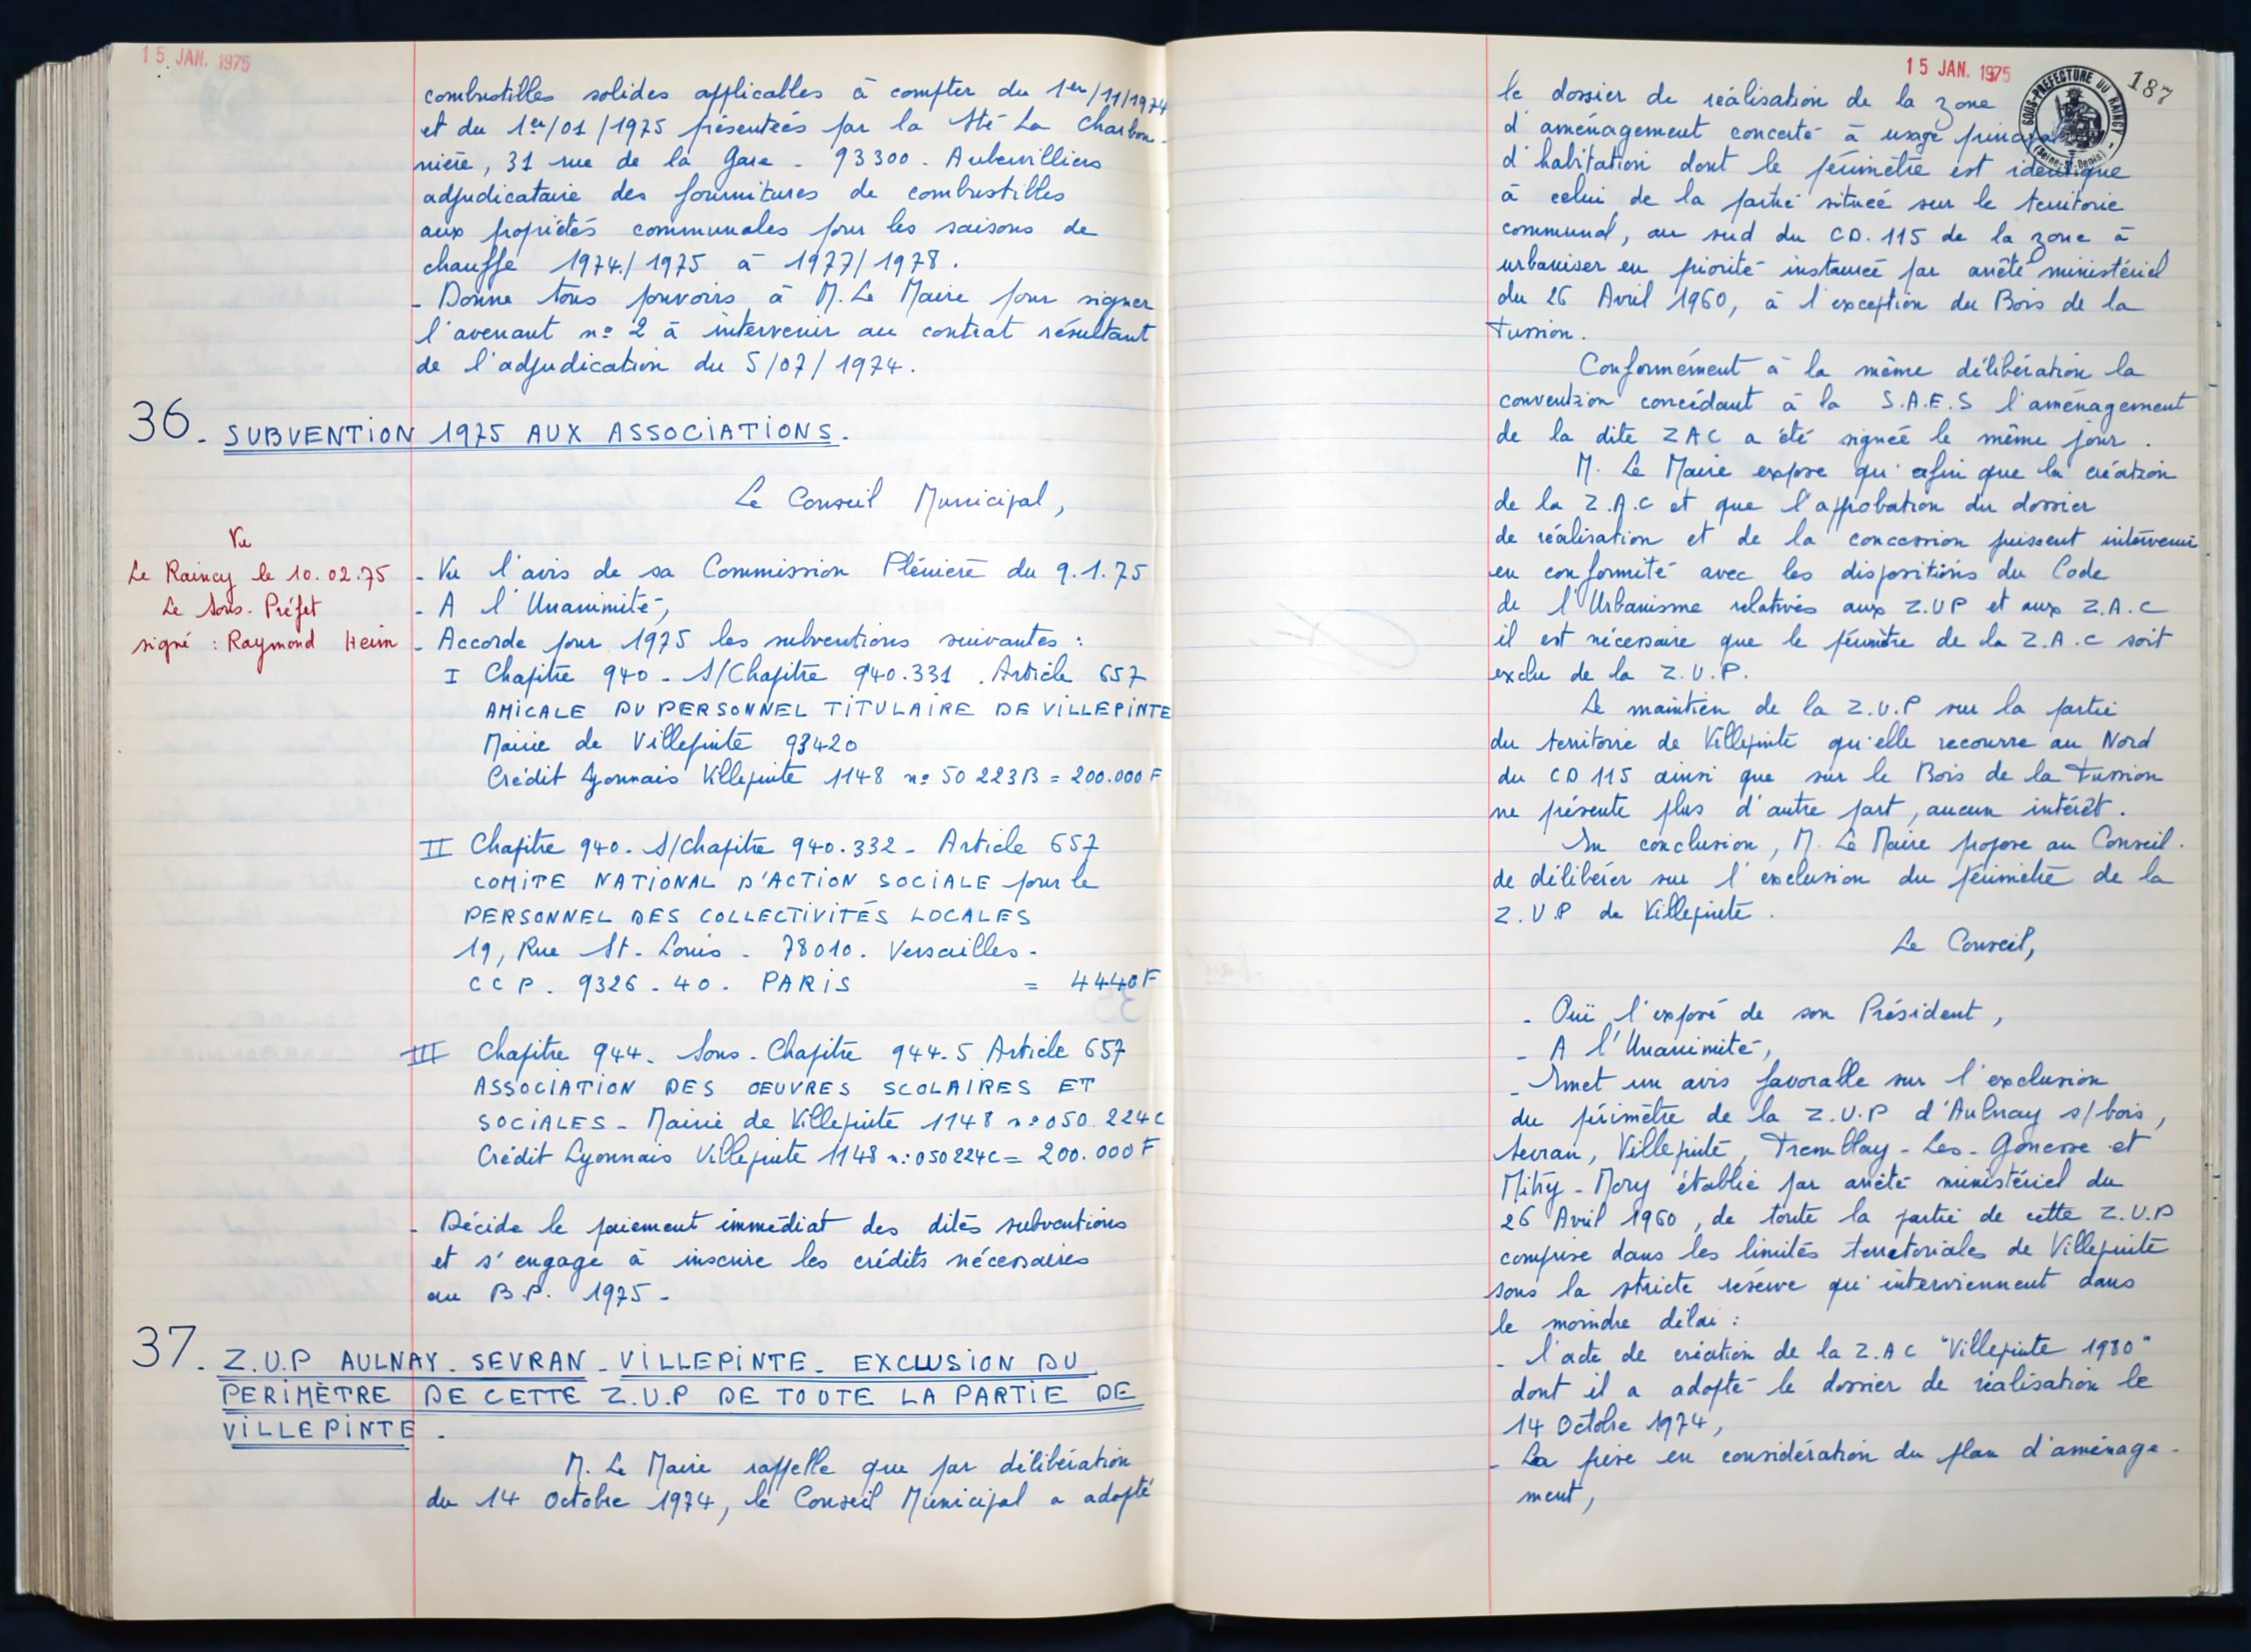 15 JAN. 1975
combustilles solides applicables à compter du 1er/11/1974
et du 1er/01/1975 présenteés par la Sté La Charbon-
nière, 31 rue de la Gare - 93300 - Aubervilliers
adjudicataire des fournitures de combustilles
aux propiétés communales pour les saisons de
chauffe 1974/1975 à 1977/1978.
- Donne tous pouvoirs à M. Le Maire pour signer
l'avenant n° 2 à intervenir au contrat résultant
de l'adjudication du 5/07/1974.
36. SUBVENTION 1975 AUX ASSOCIATIONS.
Le Conseil Municipal,
Vu
Le Raincy le 10.02.75
Le Sous-Préfet
signé : Raymond Heim
- Vu l'avis de sa Commission Plénière du 9.1.75
- A l'Unanimité,
- Accorde pour 1975 les subventions suivantes :
I Chapitre 940 - S/Chapitre 940.331. Article 657
AMICALE DU PERSONNEL TITULAIRE DE VILLEPINTE
Mairie de Villepinte 93420
Crédit Lyonnais Villepinte 1148 n° 50 223B = 200.000 F
II Chapitre 940 - S/Chapitre 940.332 - Article 657
COMITE NATIONAL D'ACTION SOCIALE pour le
PERSONNEL DES COLLECTIVITÉS LOCALES
19, Rue St. Louis - 78010. Versailles -
CCP. 9326 - 40. PARIS = 4440F
III Chapitre 944. Sous-Chapitre 944-5 Article 657
ASSOCIATION DES OEUVRES SCOLAIRES ET
SOCIALES - Mairie de Villepinte 1148 n° 050.224C
Crédit Lyonnais Villepinte 1148 n: 050224C = 200.000 F
- Décide le paiement immédiat des dites subventions
et s'engage à inscrire les crédits nécessaires
au B.P. 1975 -
37. Z.U.P AULNAY - SEVRAN - VILLEPINTE - EXCLUSION DU
PERIMÈTRE DE CETTE Z.U.P DE TOUTE LA PARTIE DE
VILLEPINTE.
M. Le Maire rappelle que par délibération
du 14 Octobre 1974, le Conseil Municipal a adopté
15 JAN. 1975
187
SOUS-PREFECTURE DU RAINCY
(Seine-St-Denis)
le dossier de réalisation de la zone
d'aménagement concerté à usage
d'habitation dont le périmètre est identique
à celui de la partie située sur le territoire
communal, au sud du CD. 115 de la zone à
urbaniser en priorité instaurée par arrêté ministériel
du 26 Avril 1960, à l'exception du Bois de la
Tussion.
Conformément à la même délibération la
convention concédant à la S.A.E.S l'aménagement
de la dite ZAC a été signée le même jour.
M. Le Maire expose qu'afin que la création
de la Z.A.C et que l'approbation du dossier
de réalisation et de la concession puissent intervenir
en conformité avec les dispositions du Code
de l'Urbanisme relatives aux Z.UP et aux Z.A.C
il est nécessaire que le périmètre de la Z.A.C soit
exclu de la Z.U.P.
Le maintien de la Z.U.P sur la partie
du territoire de Villepinte qu'elle recouvre au Nord
du CD 115 ainsi que sur le Bois de la Tussion
ne présente plus d'autre part, aucun intérêt.
En conclusion, M. Le Maire propose au Conseil.
de délibérer sur l'exclusion du périmètre de la
Z.U.P de Villepinte.
Le Conseil,
- Ouï l'exposé de son Président,
- A l'Unanimité,
- Emet un avis favorable sur l'exclusion
du périmètre de la Z.U.P d'Aulnay s/bois,
Sevran, Villepinte, Tremblay-Les-Gonesse et
Mitry-Mory établie par arrêté ministériel du
26 Avril 1960, de toute la partie de cette Z.U.P
comprise dans les limites terretoriales de Villepinte
sous la stricte réserve qu'interviennent dans
le moindre délai :
- l'acte de création de la Z.AC "Villepinte 1980"
dont il a adopté le dossier de réalisation le
14 Octobre 1974,
- La prise en considération du plan d'aménage-
ment,